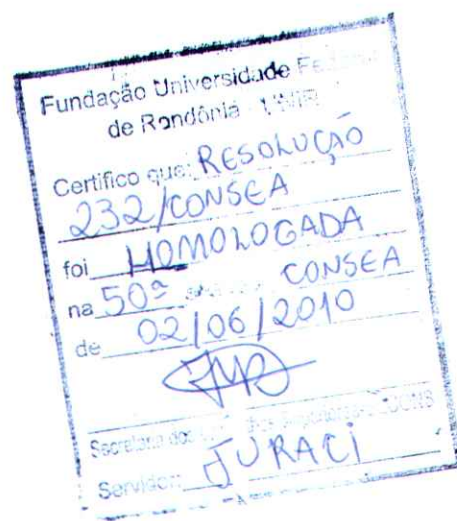 Fundação Universidade Federal
de Rondônia - UNIR
Certifico que: RESOLUÇÃO
232/CONSEA
foi HOMOLOGADA
na 50ª CONSEA
de 02/06/2010
Secretaria dos
Servidor: JURACI